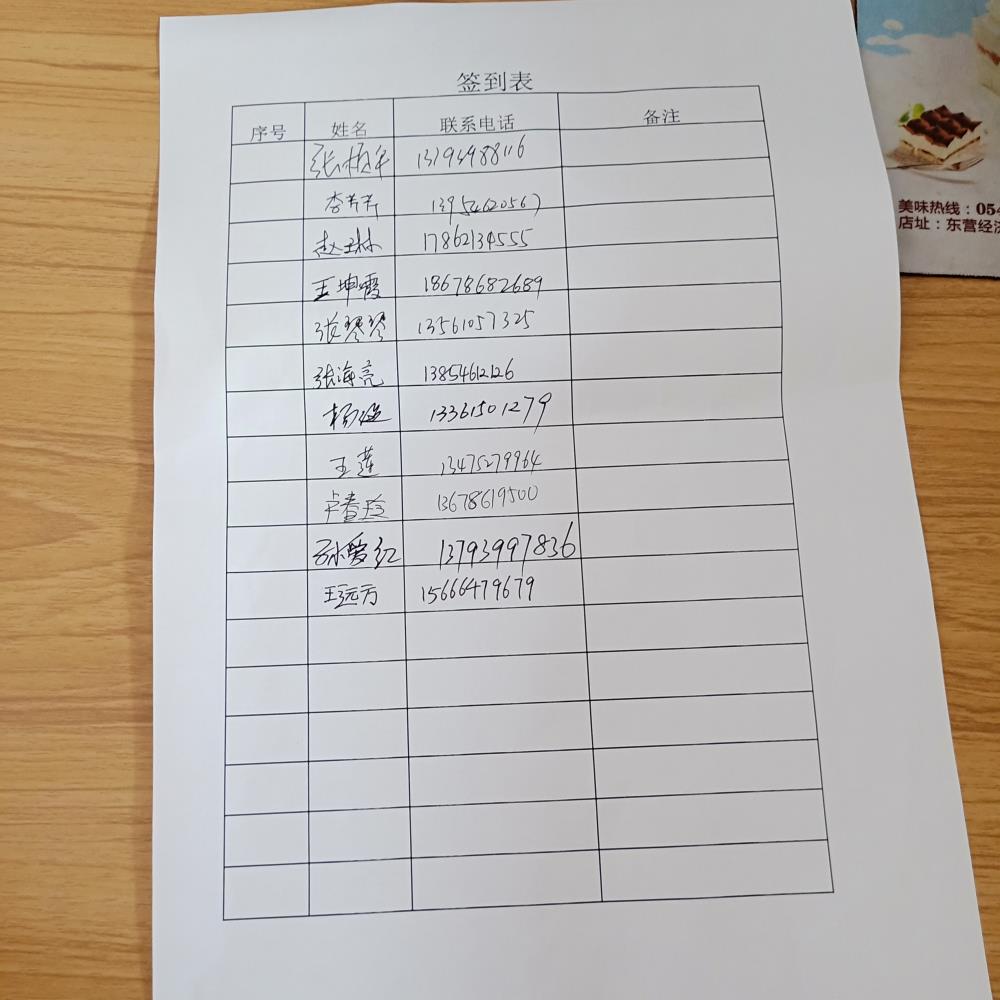 签到表
序号 姓名 联系电话 备注
13793498816
李芳芳 13954620567
赵玉林 17862134555
王坤霞 18678682689
张琴琴 13561057325
张海亮 13854612126
杨 13361501279
王莲 13475279964
卢春玲 13678619500
孙爱红 13793997836
王远方 15666479679
美味热线：054
店址：东营经济